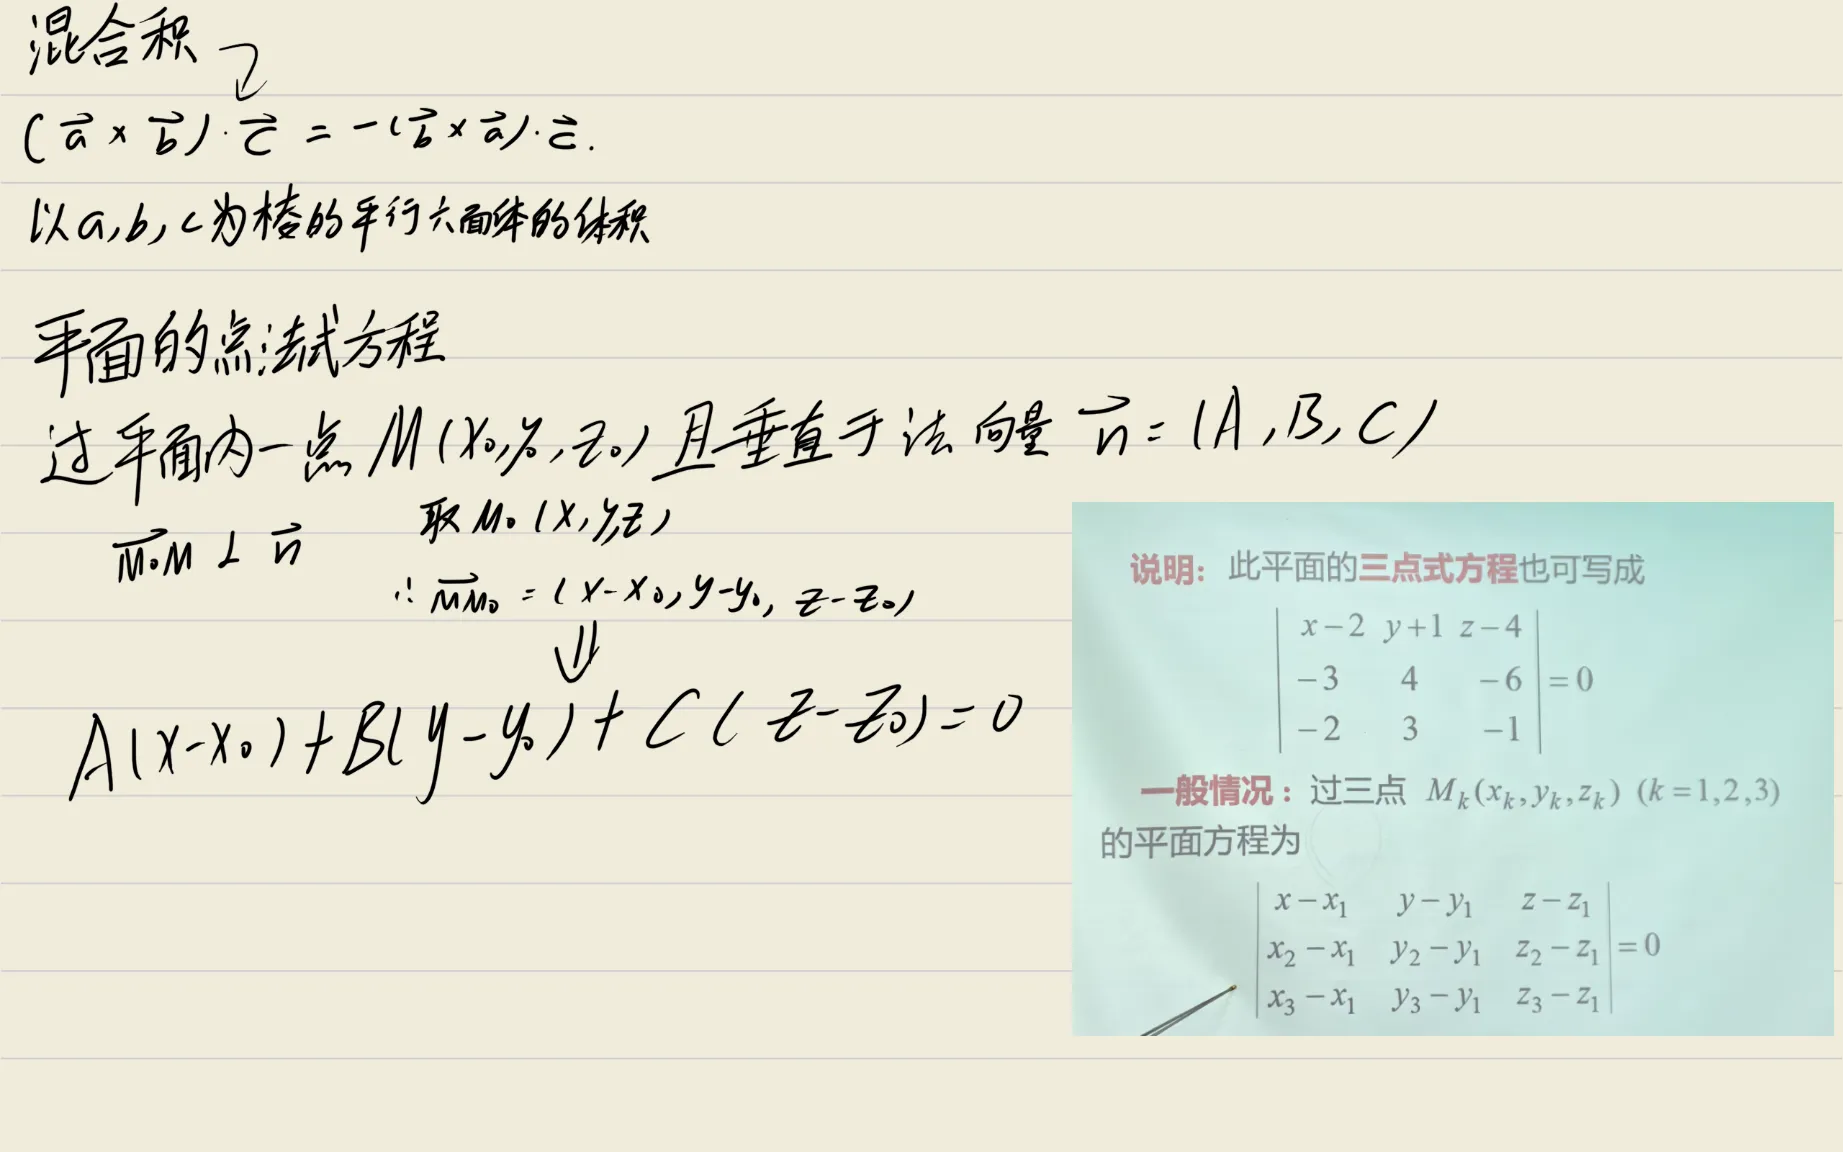 混合积
(a⃗ × b⃗)·c⃗ = -(b⃗ × a⃗)·c⃗.
以a,b,c为棱的平行六面体的体积
平面的点法式方程
过平面内一点 M(x₀,y₀,z₀) 且垂直于法向量 n⃗=(A,B,C)
取M₀(x,y,z)
M₀M⃗ ⊥ n⃗
∴ MM₀⃗ = (x-x₀, y-y₀, z-z₀)
⇓
A(x-x₀)+B(y-y₀)+C(z-z₀)=0
说明: 此平面的三点式方程也可写成
| x-2 y+1 z-4 |
| -3 4 -6 | =0
| -2 3 -1 |
一般情况: 过三点 Mₖ(xₖ,yₖ,zₖ) (k=1,2,3)
的平面方程为
| x-x₁ y-y₁ z-z₁ |
| x₂-x₁ y₂-y₁ z₂-z₁ | =0
| x₃-x₁ y₃-y₁ z₃-z₁ |